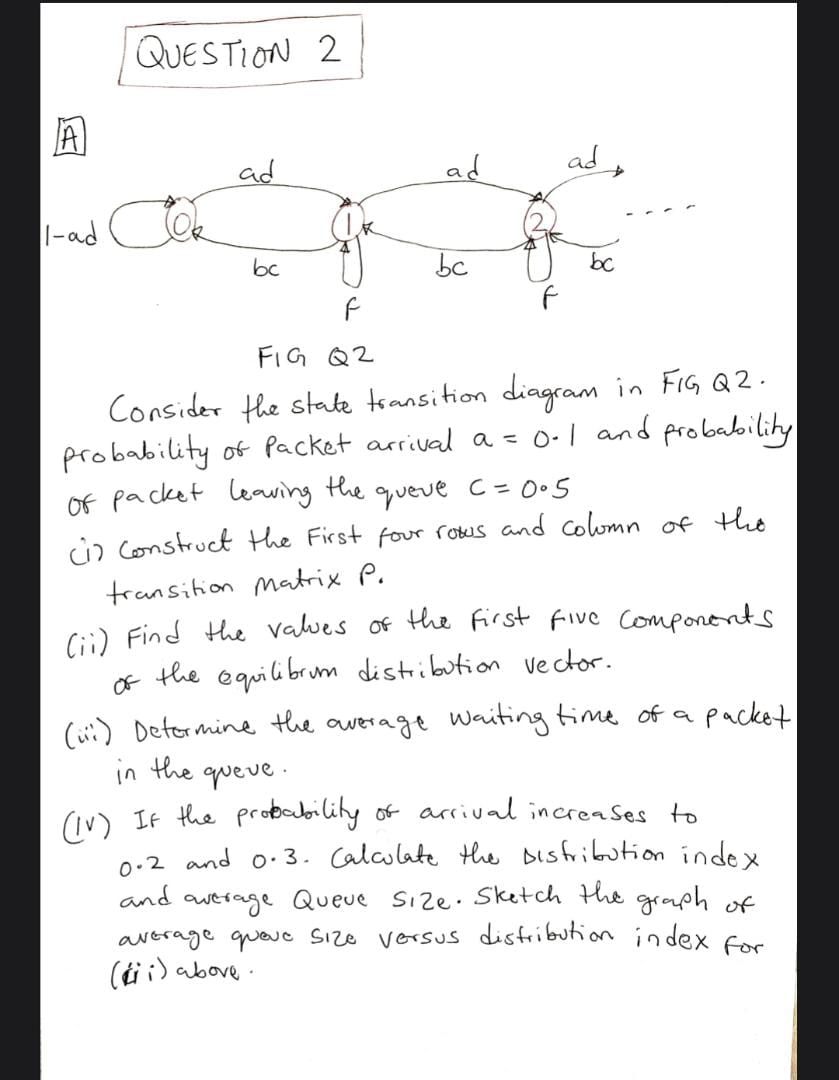 QUESTION 2
A
ad ad ad
1-ad 0 1 2 ----
bc bc bc
f f
FIG Q2
Consider the state transition diagram in FIG Q2.
probability of Packet arrival a = 0.1 and probability
of packet leaving the queue C = 0.5
(i) Construct the First four rows and colomn of the
transition matrix P.
(ii) Find the values of the first five components
of the equilibrum distribution vector.
(iii) Determine the average waiting time of a packet
in the queue.
(IV) If the probability of arrival increases to
0.2 and 0.3. Calculate the Distribution index
and average Queue Size. Sketch the graph of
average queue size versus distribution index for
(iii) above.